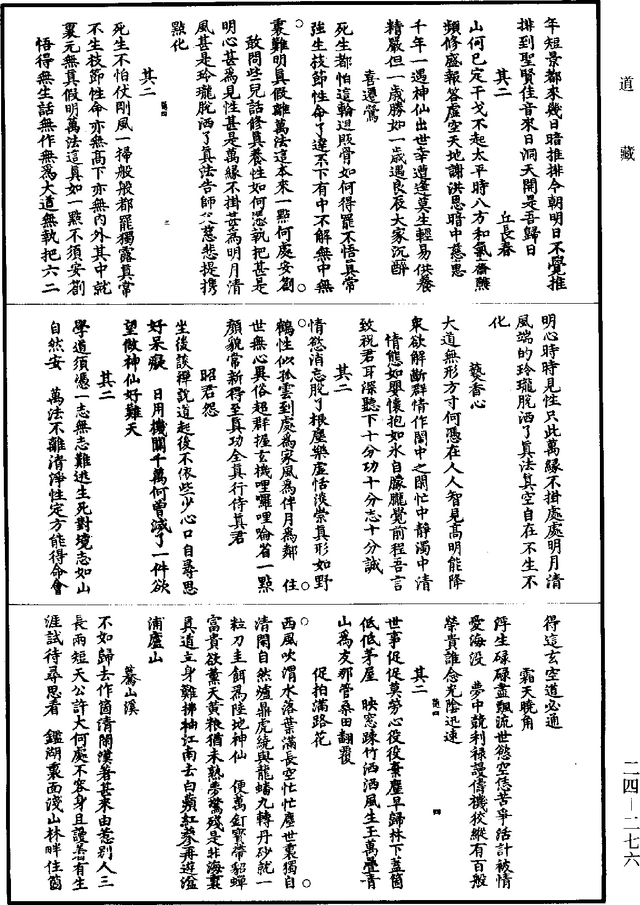 道藏
年短景都來幾日暗推排今朝明日不覺推
排到聖賢佳音來日洞天開是吾歸日
其二 丘長春
山何已定干戈不起太平時八方和氣齊燕
頻修盛報答虛空天地謝洪恩暗中慈惠
千年一遇神仙出世幸遭逢莫生輕易供養
精嚴但一歲勝如一歲遇良辰大家沉醉
喜遷鶯
死生都怕這輪迴股骨如何得罷不悟真常
強生枝節性命了達不下有中不解無中無
裏難明真假離萬法這本來一點何處安劄
敢問些兒話修真養性如何憑執把甚是
明心甚為見性甚是萬緣不掛甚為明月清
風甚是玲瓏脫洒了真法告師父慈悲提攜
點化
其二
死生不怕仗剛風一掃般般都罷獨露真常
不生枝節性命亦無高下亦無內外其中就
裏元無真假明萬法這真如一點不須安劄
悟得無生話無作無為大道無執把六二
明心時時見性只此萬緣不掛處處明月清
風端的玲瓏脫洒了真法真空自在不生不
化
爇香心
大道無形方寸何憑在人人智見高明能降
衆欲解斷群情作鬧中之閑忙中靜濁中清
情態如嬰懷抱如氷自朦朧覺前程吾言
致祝君耳深聽下十分功十分志十分誠
其二
情慾消忘脫了根塵樂虛恬淡崇真形如野
鶴性似孤雲到處為家風為伴月為鄰 住
世無心異俗超群握玄機哩囉哩唥省一點
顔貌常新得至真功全真行侍真君
昭君怨
坐後談禪說道起後不依些少心口自尋思
好呆癡 日用機關千萬何曾滅了一件欲
望做神仙好難天
其二
學道須憑一志無志難逃生死對境志如山
自然安 萬法不離清淨性定方能得命會
得這玄空道必通
霜天曉角
浮生碌碌盡飄流世慾空恁苦爭活計被情
愛海沒 夢中競利祿謾儔機狡縱有百般
榮貴誰念光陰迅速
其二
世事促促莫勞心役役紊塵早歸林下蓋箇
低低茅屋 映窓踈竹洒洒風生王萬疊青
山為友那管桑田翻覆
促拍滿路花
西風吹渭水落葉滿長空忙忙塵世裏獨自
清閑自然爐鼎虎繞與龍蟠九轉丹砂就一
粒刀圭餌為陸地神仙 便萬釘寶帶貂蟬
富貴欲薰天黄粮猶未熟夢驚殘是非海裏
直道立身難拂袖江南去白蘋紅蓼再遊湓
浦廬山
驀山溪
不如歸去作箇清閑漢著甚來由惹別人三
長兩短天公許大何處不容身且謾著有生
涯試待尋思看 鑑湖裏面淺山林畔住箇
二四－二七六